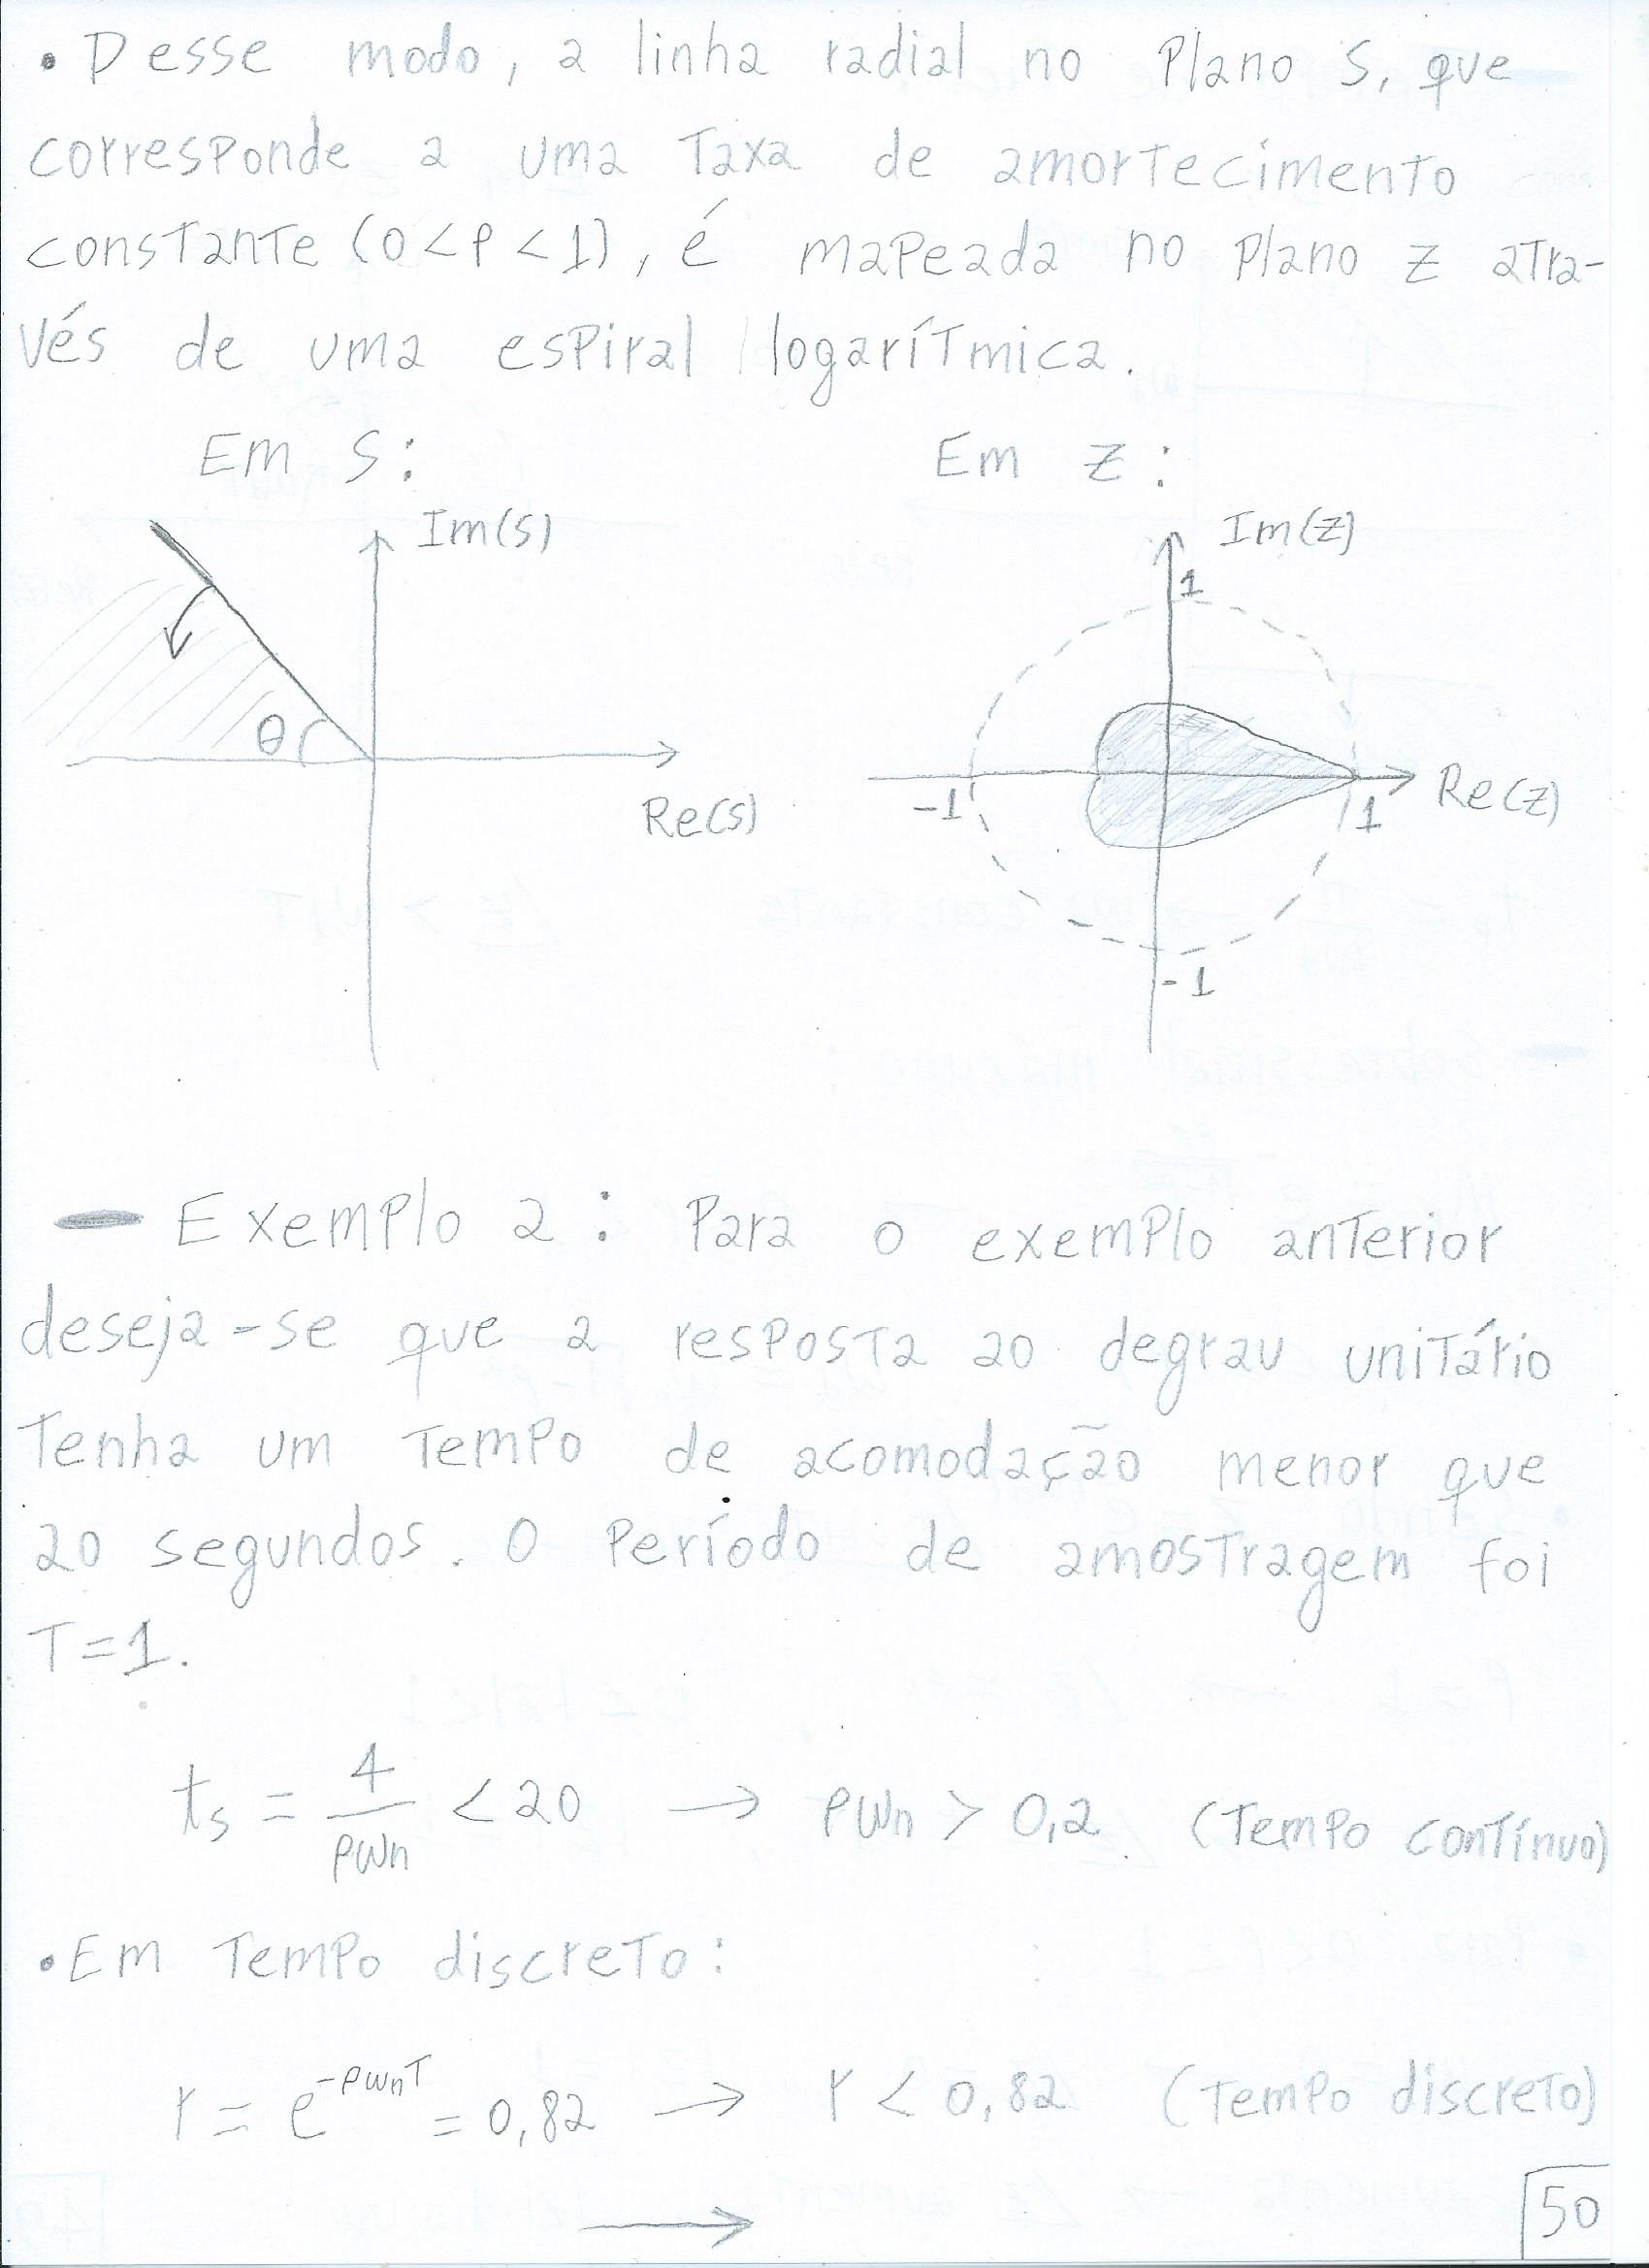 • Desse modo, a linha radial no plano S, que
corresponde a uma taxa de amortecimento
constante (0<ρ<1), é mapeada no plano z atra-
vés de uma espiral logarítmica.
Em S:
Em z:
Im(s)
θ
Re(s)
Im(z)
1
-1
1
Re(z)
-1
— Exemplo 2: Para o exemplo anterior
deseja-se que a resposta ao degrau unitário
tenha um tempo de acomodação menor que
20 segundos. O período de amostragem foi
T=1.
ts = 4/ρwn < 20 → ρwn > 0,2 (tempo contínuo)
• Em tempo discreto:
r = e^-ρwnT = 0,82 → r < 0,82 (tempo discreto)
→
50